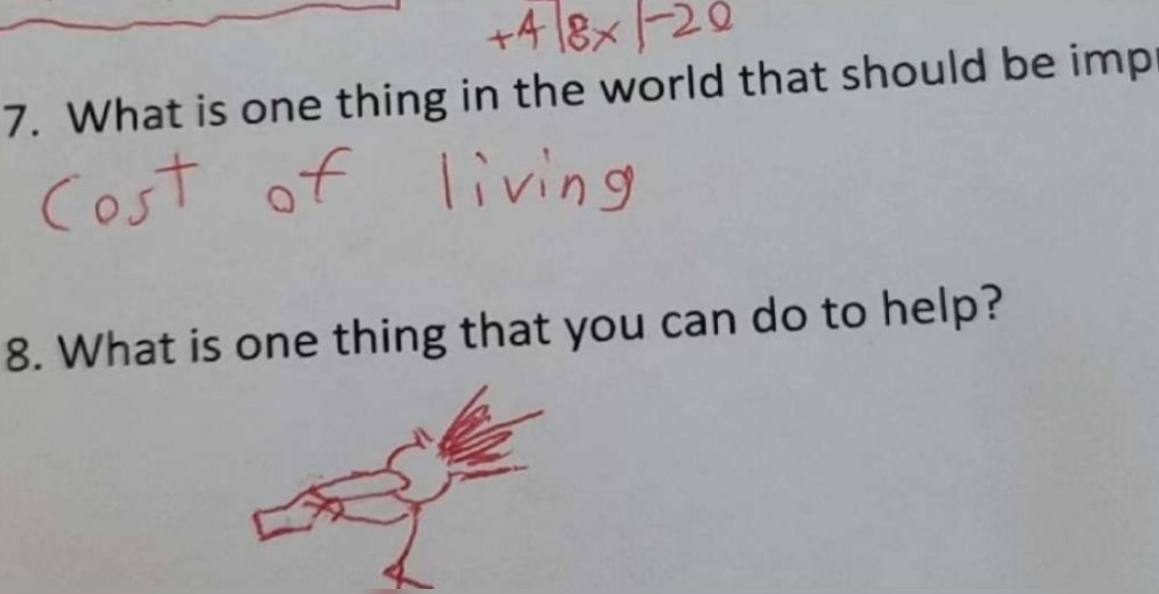 +4 8x -20
7. What is one thing in the world that should be imp
Cost of living
8. What is one thing that you can do to help?